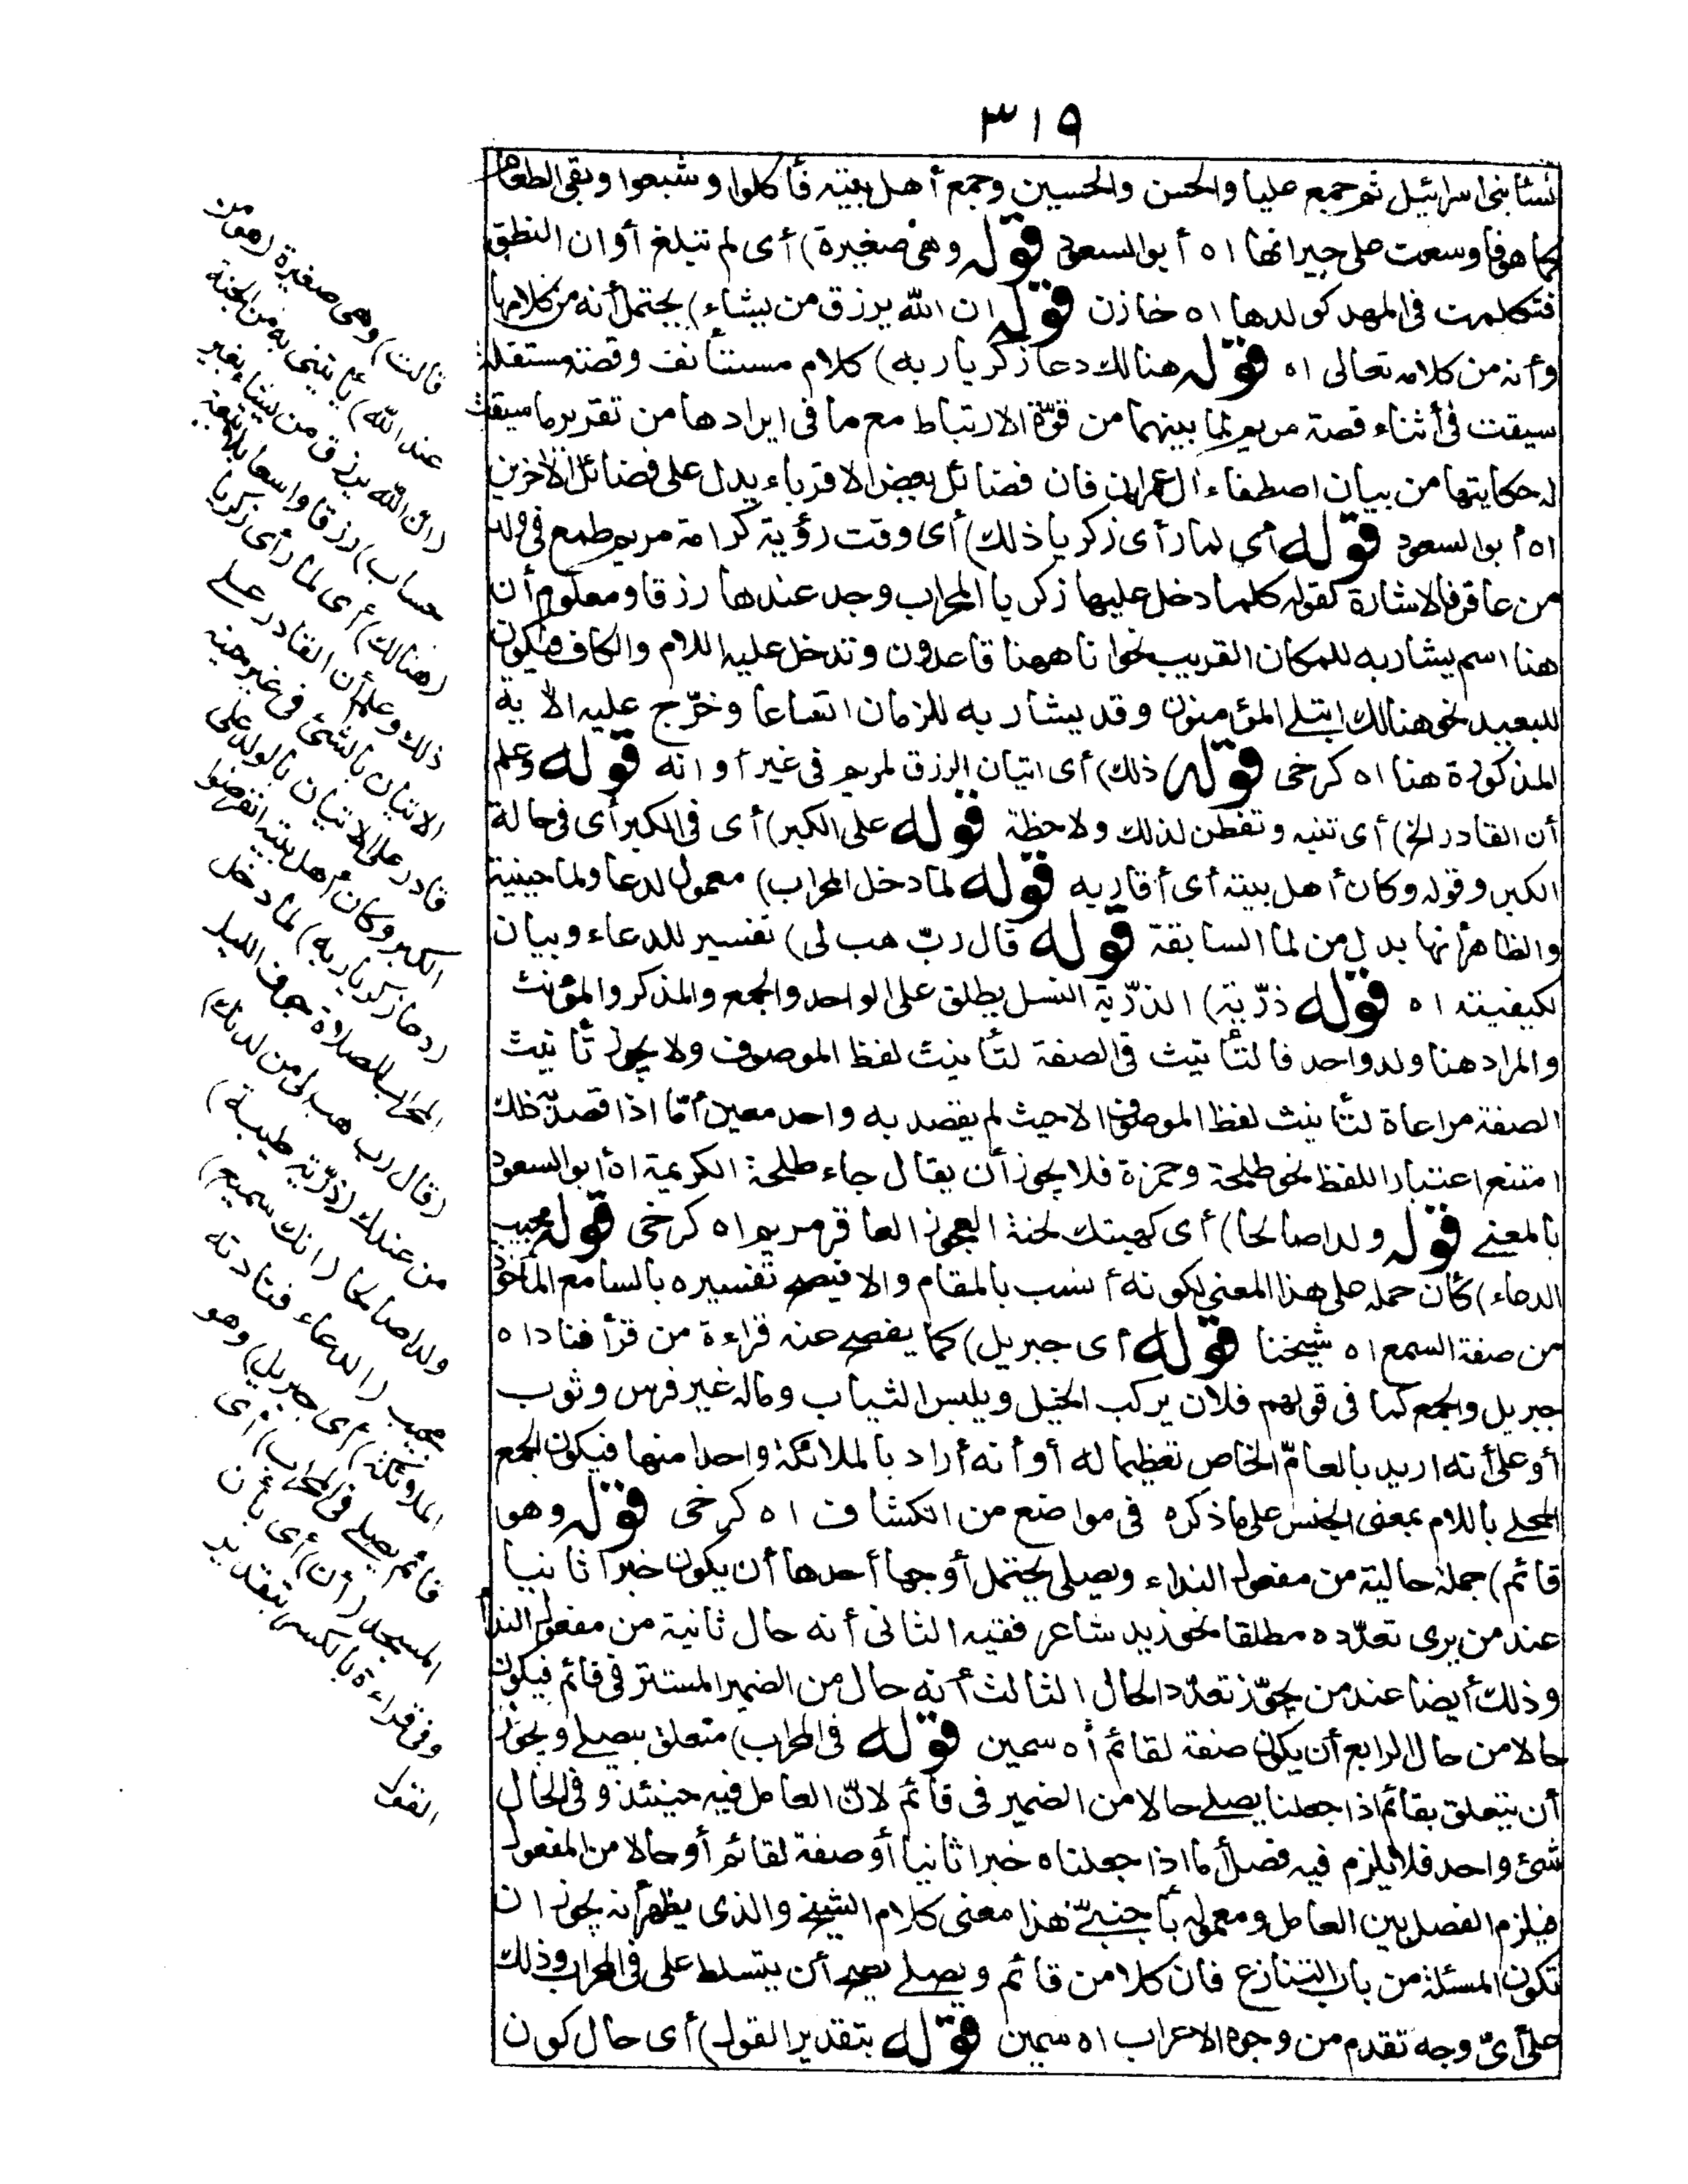 ٣١٩
نسا بنى اسرائيل ثم جمع عليا والحسن والحسين وجمع أهل بيته فأكلوا وشبعوا وبقى الطعام
كما هو فاوسعت على جيرانها اه أبو السعود قوله وهى صغيرة) أى لم تبلغ أوان النطق
فتكلمت فى المهد كولدها اه خازن قوله ان الله يرزق من يشاء) يحتمل أنه من كلامها
وأنه من كلامه تعالى اه قوله هنالك دعا زكريا ربه) كلام مستأنف وقصة مستقلة
سيقت فى أثناء قصة مريم لما بينهما من قوّة الارتباط مع ما فى ايرادها من تقرير ما سيقت
له حكايتها من بيان اصطفاء آل عمران فان فضائل بعض الاقرباء يدل على فضائل الآخرين
اه أبو السعود قوله أى لما رأى زكريا ذلك) أى وقت رؤية كرامة مريم طمع فى ولد
من عاقر فالاشارة كقوله كلما دخل عليها زكريا المحراب وجد عندها رزقا ومعلوم أن
هنا اسم يشار به للمكان القريب نحو انا ههنا قاعدون وتدخل عليه اللام والكاف فيكون
للبعيد نحو هنالك ابتلى المؤمنون وقد يشار به للزمان اتساعا وخرّج عليه الآية
المذكورة هنا اه كرخى قوله ذلك) أى اتيان الرزق لمريم فى غير أوانه قوله وعلم
أن القادر الخ) أى تنبه وتفطن لذلك ولاحظة قوله على الكبر) أى فى الكبر أى فى حالة
الكبر وقوله وكان أهل بيته أى أقاربه قوله لما دخل المحراب) معمول لدعا ولما حينية
والظاهر أنها بدل من لما السابقة قوله قال ربّ هب لى) تفسير للدعاء وبيان
لكيفيته اه قوله ذرّية) الذرّية النسل يطلق على الواحد والجمع والمذكر والمؤنث
والمراد هنا ولد واحد فالتأنيث فى الصفة لتأنيث لفظ الموصوف ولا يجوز تأنيث
الصفة مراعاة لتأنيث لفظ الموصوف الا حيث لم يقصد به واحد معين أمّا اذا قصد به ذلك
امتنع اعتبار اللفظ نحو طلحة وحمزة فلا يجوز أن يقال جاء طلحة الكريمة اه أبو السعود
بالمعنى قوله ولدا صالحا) أى كهبتك لحنة العجوز العاقر مريم اه كرخى قوله مجيب
الدعاء) كأن حمله على هذا المعنى لكونه أنسب بالمقام والا فيصح تفسيره بالسامع المأخوذ
من صفة السمع اه شيخنا قوله أى جبريل) كما يفصح عنه قراءة من قرأ فناداه
جبريل والجمع كما فى قولهم فلان يركب الخيل ويلبس الثياب وماله غير فرس وثوب
أو على أنه اريد بالعامّ الخاص تعظيما له أو أنه أراد بالملائكة واحدا منها فيكون الجمع
المحلى باللام بمعنى الجنس على ما ذكره فى مواضع من الكشاف اه كرخى قوله وهو
قائم) جملة حالية من مفعول النداء ويصلى يحتمل أوجها أحدها أن يكون خبرا ثانيا
عند من يرى تعدّده مطلقا نحو زيد شاعر فقيه الثانى أنه حال ثانية من مفعول الندا
وذلك أيضا عند من يجوّز تعدّد الحال الثالث أنه حال من الضمير المستتر فى قائم فيكون
حالا من حال الرابع أن يكون صفة لقائم اه سمين قوله فى المحراب) متعلق بيصلى ويجوز
أن يتعلق بقائم اذا جعلنا يصلى حالا من الضمير فى قائم لانّ العامل فيه حينئذ وفى الحال
شئ واحد فلا يلزم فيه فصل أما اذا جعلناه خبرا ثانيا أو صفة لقائم أو حالا من المفعول
فيلزم الفصل بين العامل ومعموله بأجنبىّ هذا معنى كلام الشيخ والذى يظهر أنه يجوز ان
تكون المسئلة من باب التنازع فان كلا من قائم ويصلى يصح أن يتسلط على فى المحراب وذلك
على أىّ وجه تقدم من وجوه الاعراب اه سمين قوله بتقدير القول) أى حال كون
قالت) وهى صغيرة (هو من
عند الله) يأتينى به من الجنة
(ان الله يرزق من يشاء بغير
حساب) رزقا واسعا بلا تبعة
(هنالك) أى لما رأى زكريا
ذلك وعلم أن القادر على
الاتيان بالشئ فى غير حينه
قادر على الاتيان بالولد على
الكبر وكان أهل بيته انقرضوا
(دعا زكريا ربه) لما دخل
المحراب للصلاة جوف الليل
(قال رب هب لى من لدنك)
من عندك (ذرّية طيبة)
ولدا صالحا (انك سميع)
مجيب (الدعاء فنادته
الملائكة) أى جبريل (وهو
قائم يصلى فى المحراب) أى
المسجد (أن) أى بأن
وفى قراءة بالكسر بتقدير
القول